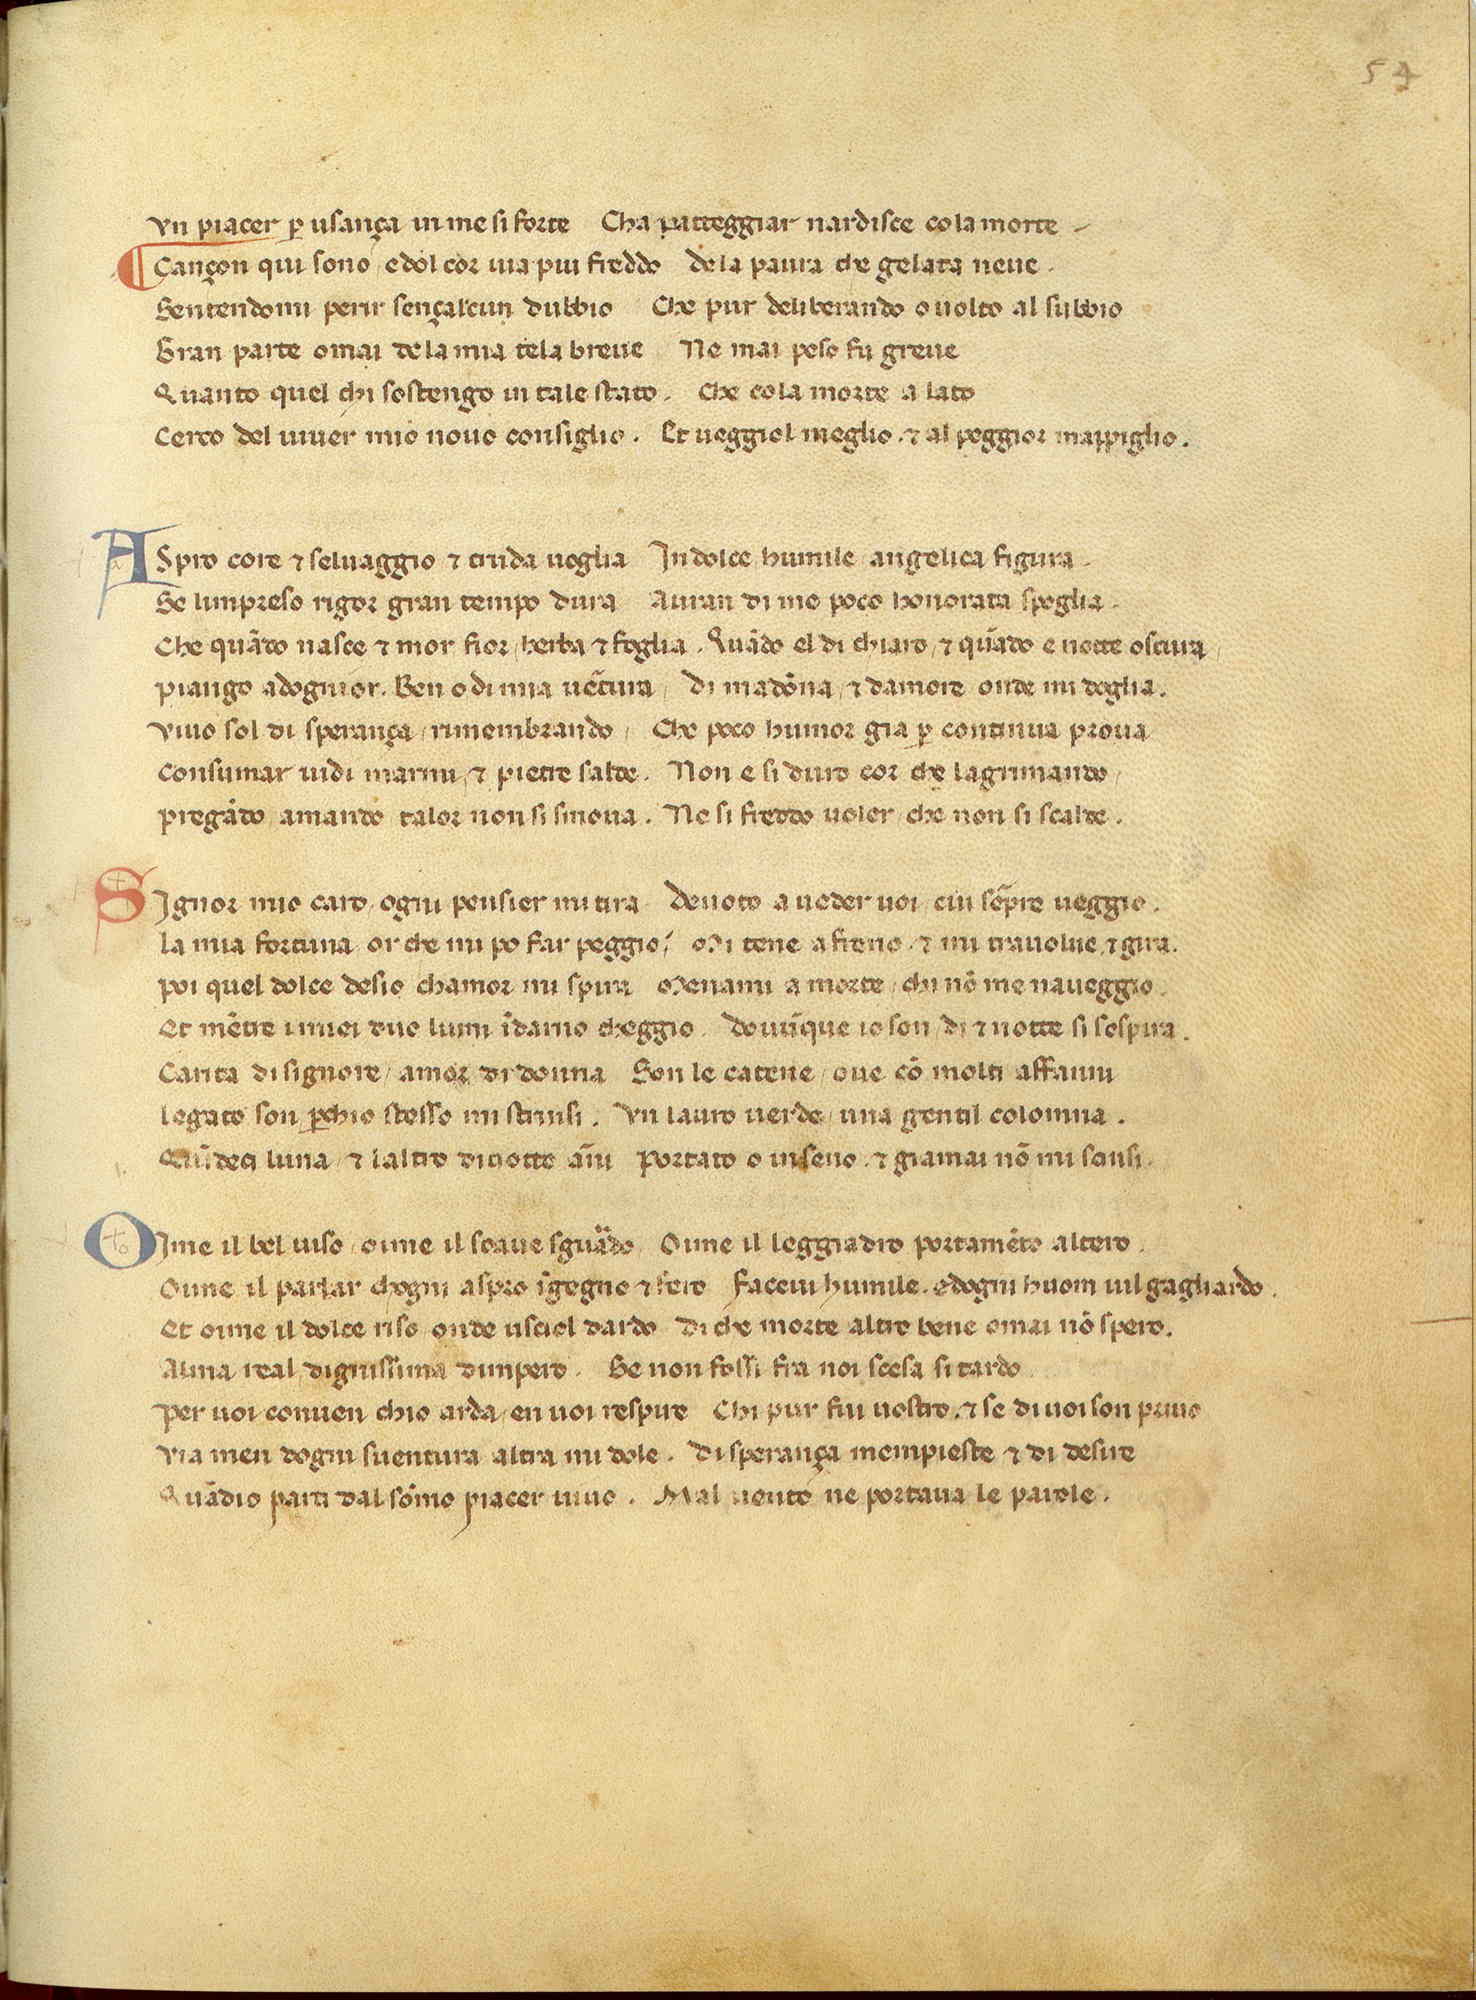 54
Vn piacer ꝑ usança in me si forte Cha patteggiar nardisce co la morte
Cançon qui sono / edol cor uia piu freddo de la paura che gelata neue .
Sentendomi perir sençalcun dubbio Che pur deliberando o uolto al subbio
Gran parte omai de la mia tela breue Ne mai peso fu greue
Quanto quel chi sostengo in tale stato . Che co la morte a lato
Cerco del uiuer mio nouo consiglio . Et ueggiol meglio . ⁊ al peggior mappiglio .
ASpro core ⁊ seluaggio ⁊ cruda uoglia In dolce / humile / angelica figura .
Se limpreso rigor gran tempo dura Auran di me poco honorata spoglia .
Che quãdo nasce ⁊ mor fior / herba ⁊ foglia . Quãdo el di chiaro / ⁊ quãdo e notte oscura /
piango adognior . Ben o di mia uẽtura / Di madõna / ⁊ damore onde mi doglia .
Viuo sol di sperança / rimembrando / Che poco humor gia ꝑ continua proua
Consumar uidi marmi / ⁊ pietre salde . Non e si duro cor che lagrimando /
pregãdo / amando talor non si smoua . Ne si freddo uoler / che non si scalde .
SIgnor mio caro / ogni pensier mi tira Deuoto a ueder uoi / cui sẽpre ueggio .
La mia fortuna / or che mi po far peggio? Mi tene a freno . ⁊ mi trauolue . ⁊ gira .
Poi quel dolce desio chamor mi spira Menami a morte / chi nõ me naueggio .
Et mẽtre i miei duo lumi ĩdarno cheggio . Douũque io son / di ⁊ notte si sospira .
Carita di signore / amor di donna Son le catene / oue cõ molti affanni
Legato son ꝑchio stesso mi strinsi . Vn lauro uerde / una gentil colomna .
Quĩdeci luna / ⁊ laltro diciotto ãni Portato o in seno . ⁊ giamai nõ mi scinsi .
OIme il bel uiso / oime il soaue sguãdo / Oime il leggiadro portamẽto altero .
Oime il parlar chogni aspro ĩgegno ⁊ fero Faceui humile . edogni huom uil gagliardo .
Et oime il dolce riso / onde uscio l dardo Di che morte altro bene omai nõ spero .
Alma real dignissima dimpero . Se non fossi fra noi scesa si tardo
Per uoi conuen chio arda / en uoi respire Chi pur fui uostro . ⁊ se di uoi son priuo
Via men dogni suentura altra mi dole . Di sperança mempieste ⁊ di desire
Quãdio parti dal sõmo piacer uiuo . Mal uento ne portaua le parole .